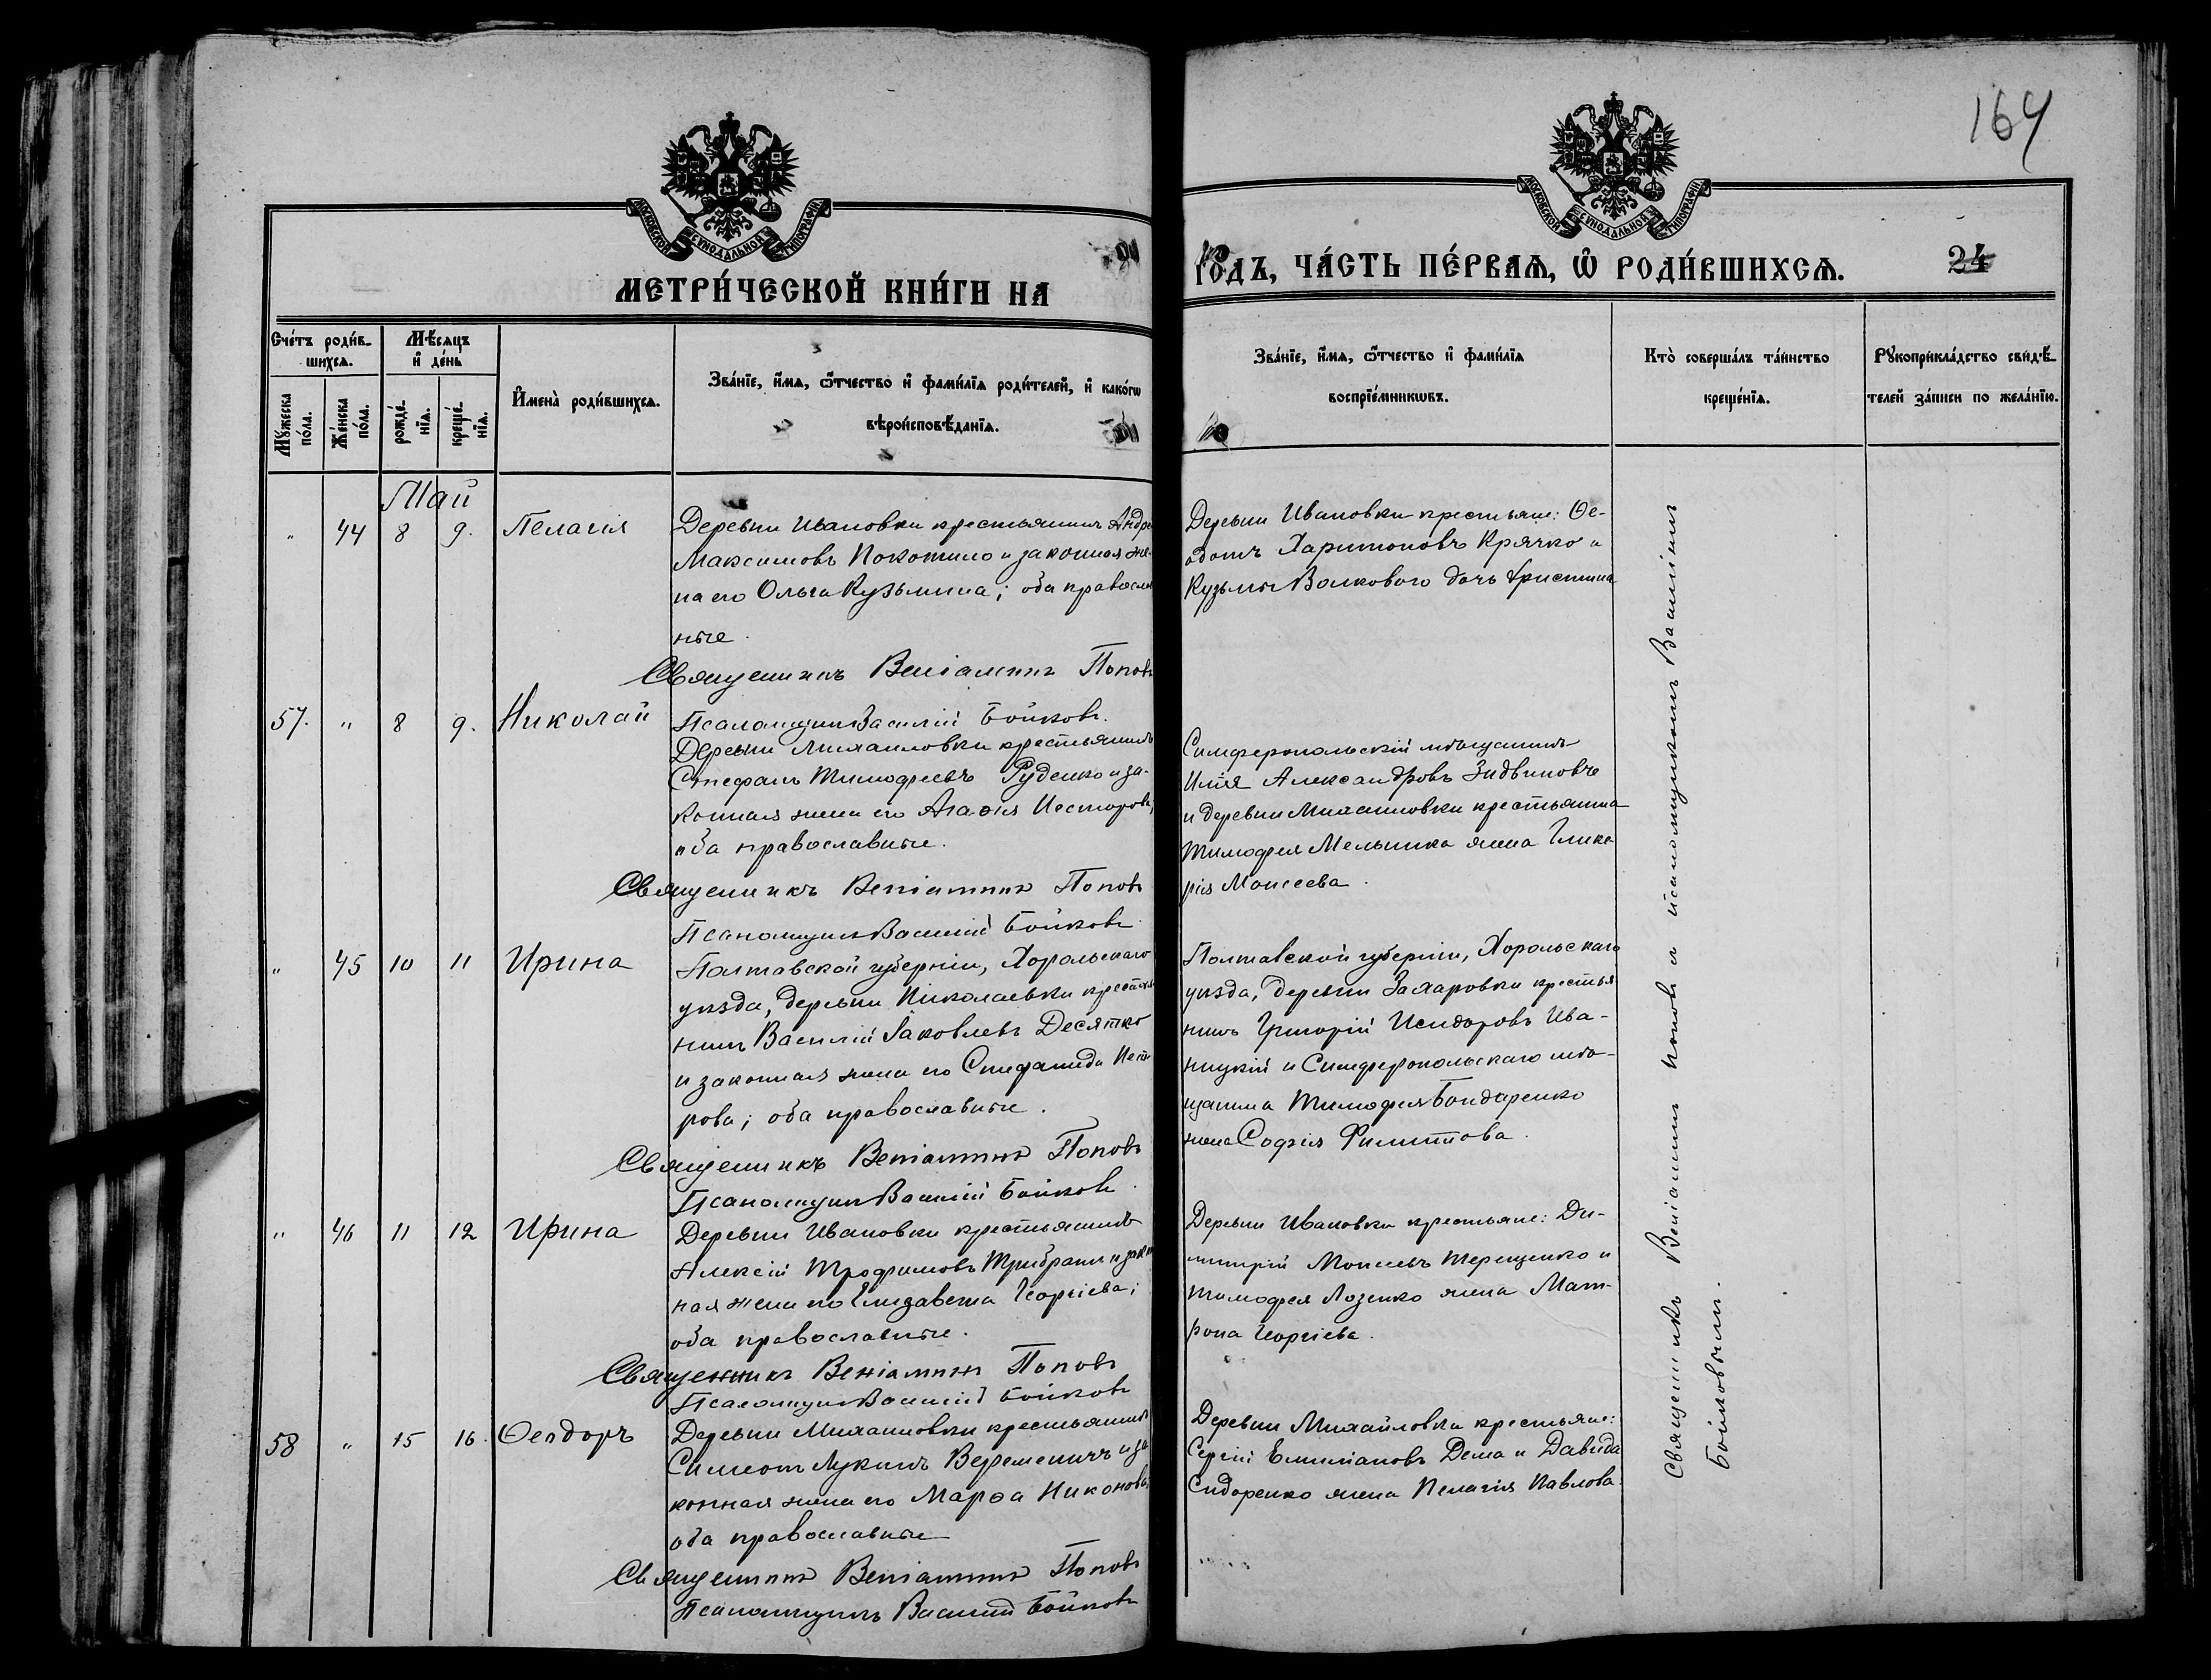 164
МОСКОВСКОЙ СѴНОДАЛЬНОЙ ТИПОГРАФІИ
МОСКОВСКОЙ СѴНОДАЛЬНОЙ ТИПОГРАФІИ
МЕТРИ́ЧЕСКОЙ КНИ́ГИ НА
ГО́ДЪ, ЧА́СТЬ ПЕ́РВАѦ, Ѿ РОДИ́ВШИХСѦ.
24
Сче́тъ роди́в-
шихсѧ.
Мꙋ́жеска
по́ла.
Же́нска
по́ла.
Мѣ́сѧцъ
и҆ де́нь
рожде́-
нїѧ.
креще́-
нїѧ.
И҆мена̀ роди́вшихсѧ.
Зва́нїе, и҆́мѧ, ѻ҆́тчество и҆ фами́лїѧ роди́телей, и҆ како́гѡ
вѣроисповѣ́данїѧ.
Зва́нїе, и҆́мѧ, ѻ҆́тчество и҆ фами́лїѧ
воспрїе́мникѡвъ.
Кто̀ соверша́лъ та́инство
креще́нїѧ.
Рꙋкоприкла́дство свидѣ́-
телей за́писи по жела́нїю.
Май
" 44 8 9. Пелагія
Деревни Ивановки крестьянинъ Андре
Максимовъ Покотило и законная же-
на его Ольга Кузьмина; оба правосла
ные.
Священникъ Веніаминъ Поповъ
Псаломщикъ Василій Бойковъ.
Деревни Ивановки крестьяне: Ѳе-
одотъ Харитоновъ Крячко и
Кузьмы Волкового дочь Христина
57. " 8 9. Николай
Деревни Михайловки крестьянинъ
Стефанъ Тимофеевъ Руденко и за-
конная жена его Агаѳія Несторова,
оба православные.
Священникъ Веніаминъ Поповъ
Псаломщикъ Василій Бойковъ.
Симферопольскій мѣщанинъ
Илія Александровъ
и деревни Михайловки крестьянина
Тимофея Мельника жена Глике
рія Моисеева.
" 45 10 11 Ирина
Полтавской губерніи, Хорольскаго
уѣзда, деревни Николаевки крестья
нинъ Василій Іаковлевъ Десятко
и законная жена его Стефанида Несто
рова; оба православные.
Священникъ Веніаминъ Поповъ
Псаломщикъ Василій Бойковъ.
Полтавской губерніи, Хорольскаго
уѣзда, деревни Захаровки крестья
нинъ Григорій Исидоровъ Ива-
ницкій и Симферопольскаго мѣ-
щанина Тимофея Бондаренко
жена Софія Филиппова.
" 46 11 12 Ирина
Деревни Ивановки крестьянинъ
Алексій Трофимовъ и закон
ная жена его Елизавета Георгіева;
оба православные.
Священникъ Веніаминъ Поповъ
Псаломщикъ Василій Бойковъ
Деревни Ивановки крестьяне: Ди-
митрій Моисеевъ Терещенко и
Тимофея Лозенко жена Мат-
рона Георгіева.
58 " 15 16. Ѳеодоръ
Деревни Михайловки крестьянинъ
Симеонъ Лукинъ Веремеичъ и за
конная жена его Марѳа Никонова;
оба православные
Священникъ Веніаминъ Поповъ
Псаломщикъ Василій Бойковъ
Деревни Михайловки крестьяне:
Сергій Емиліановъ Дема и Давида
Сидоренко жена Пелагія Павлова
Священникъ Веніаминъ Поповъ и псаломщикомъ Василіемъ
Бойковымъ.